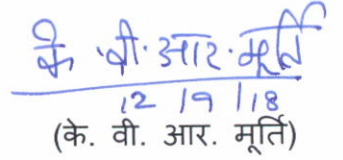 के. वी. आर. मूर्ति
12/9/18
(के. वी. आर. मूर्ति)